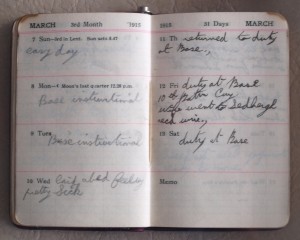 MARCH 3rd Month 1915
7 Sun—3rd in Lent. Sun sets 5.47
easy day
8 Mon—☾ Moon's last quarter 12.28 p.m.
Base instructional
9 Tues
Base instructional
10 Wed Laid abed feeling
pretty sick
1915 31 Days MARCH
11 Th returned to duty
at Base.,
12 Fri duty at Base
10th Battn Coy
went to
13 Sat
duty at Base
Memo